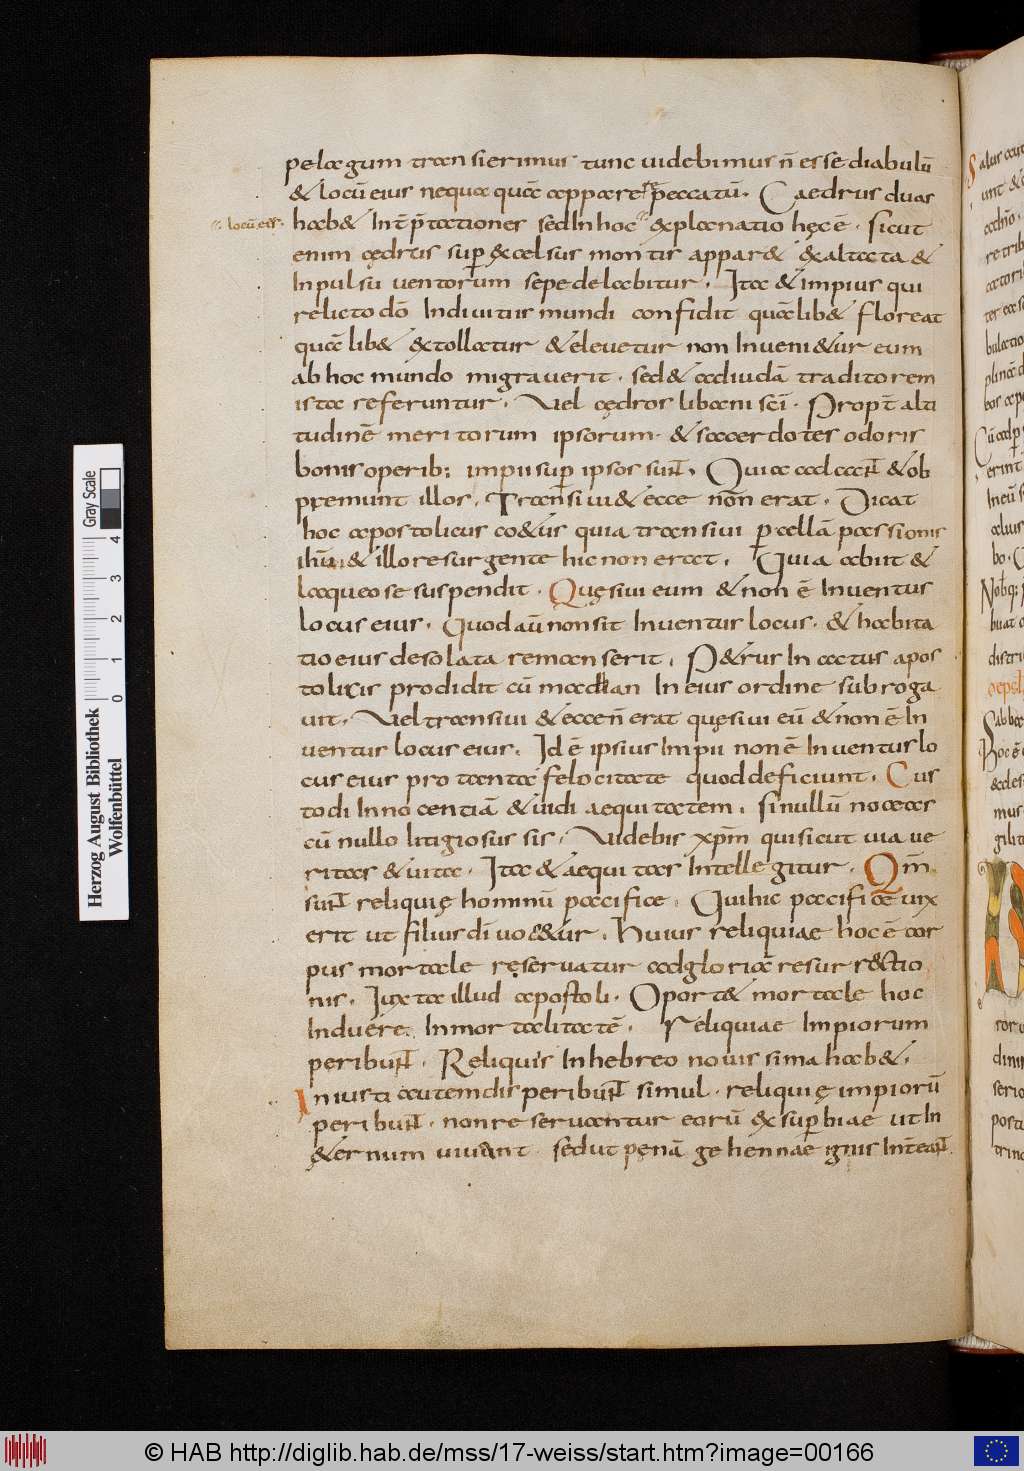 pelagum transierimus tunc videbimus n̄ esse diabulū
& locū eius nequaquā apparere ppeccatū. Caedrus duas
·locū eis· hab& Int̄p̄tationes sed In hoc explanatio hęc ē. sicut
enim cędrus sup excelsus montis appar& exaltata &
Inpulsu ventorum sepe delabitur. Ita & impius qui
relicto dō Indivitiis mundi confidit quālib& floreat
quālib& extollatur & elevetur non Inveni&ur eum
ab hoc mundo migraverit. sed & ad iudā traditorem
ista referuntur. Vel cędros libani sc̄i. Propt̄ alti
tudinē meritorum ipsorum. & sacerdotes odoris
bonis operib; impii sup ipsos sunt. Quia adcant & ob
pręmunt illos. Transivi & ecce non erat. Dicat
hoc apostolicus co&us quia transivi p cellā passionis
ihū & illo resurgente hic non erat. Quia abiit &
laqueo se suspendit. Quęsivi eum & non ē Inventus
locus eius. Quod aū non sit Inventus locus. & habita
tio eius desolata remanserit. P&rus In actus apos
tolicis prodidit cū mathian In eius ordine subroga
vit. Vel transivi & ecce n̄ erat quęsivi eū & non ē In
ventus locus eius. Id ē ipsius Impii non ē Inventus lo
cus eius pro tanta felocitate quod deficiunt. Cus
todi Innocentiā & vidi aequitatem. si nullū noceas
cū nullo litigiosus sis. Videbis xp̄m qui sicut via ve
ritas & vita. Ita & aequitas Intellegitur. Qm̄
sunt reliquię hominū pacifice. Qui hic pacificē vix
erit ut filius dī voc&ur. Huius reliquiae hoc ē cor
pus mortale reservatur ad gloriā resurrectio
nis. Iuxta illud apostoli. Oport& mortale hoc
Induere. Inmortalitatē. Reliquiae Impiorum
peribunt. Reliquis In hebreo novissima hab&.
Iniusti autem disperibunt simul. reliquię impiorū
peribunt. non reservantur eorū ex superbiae ut In
&ernum vivant. sed ut pęnā gehennae ignis
Herzog August Bibliothek
Wolfenbüttel
Gray Scale
0 1 2 3 4
© HAB http://diglib.hab.de/mss/17-weiss/start.htm?image=00166